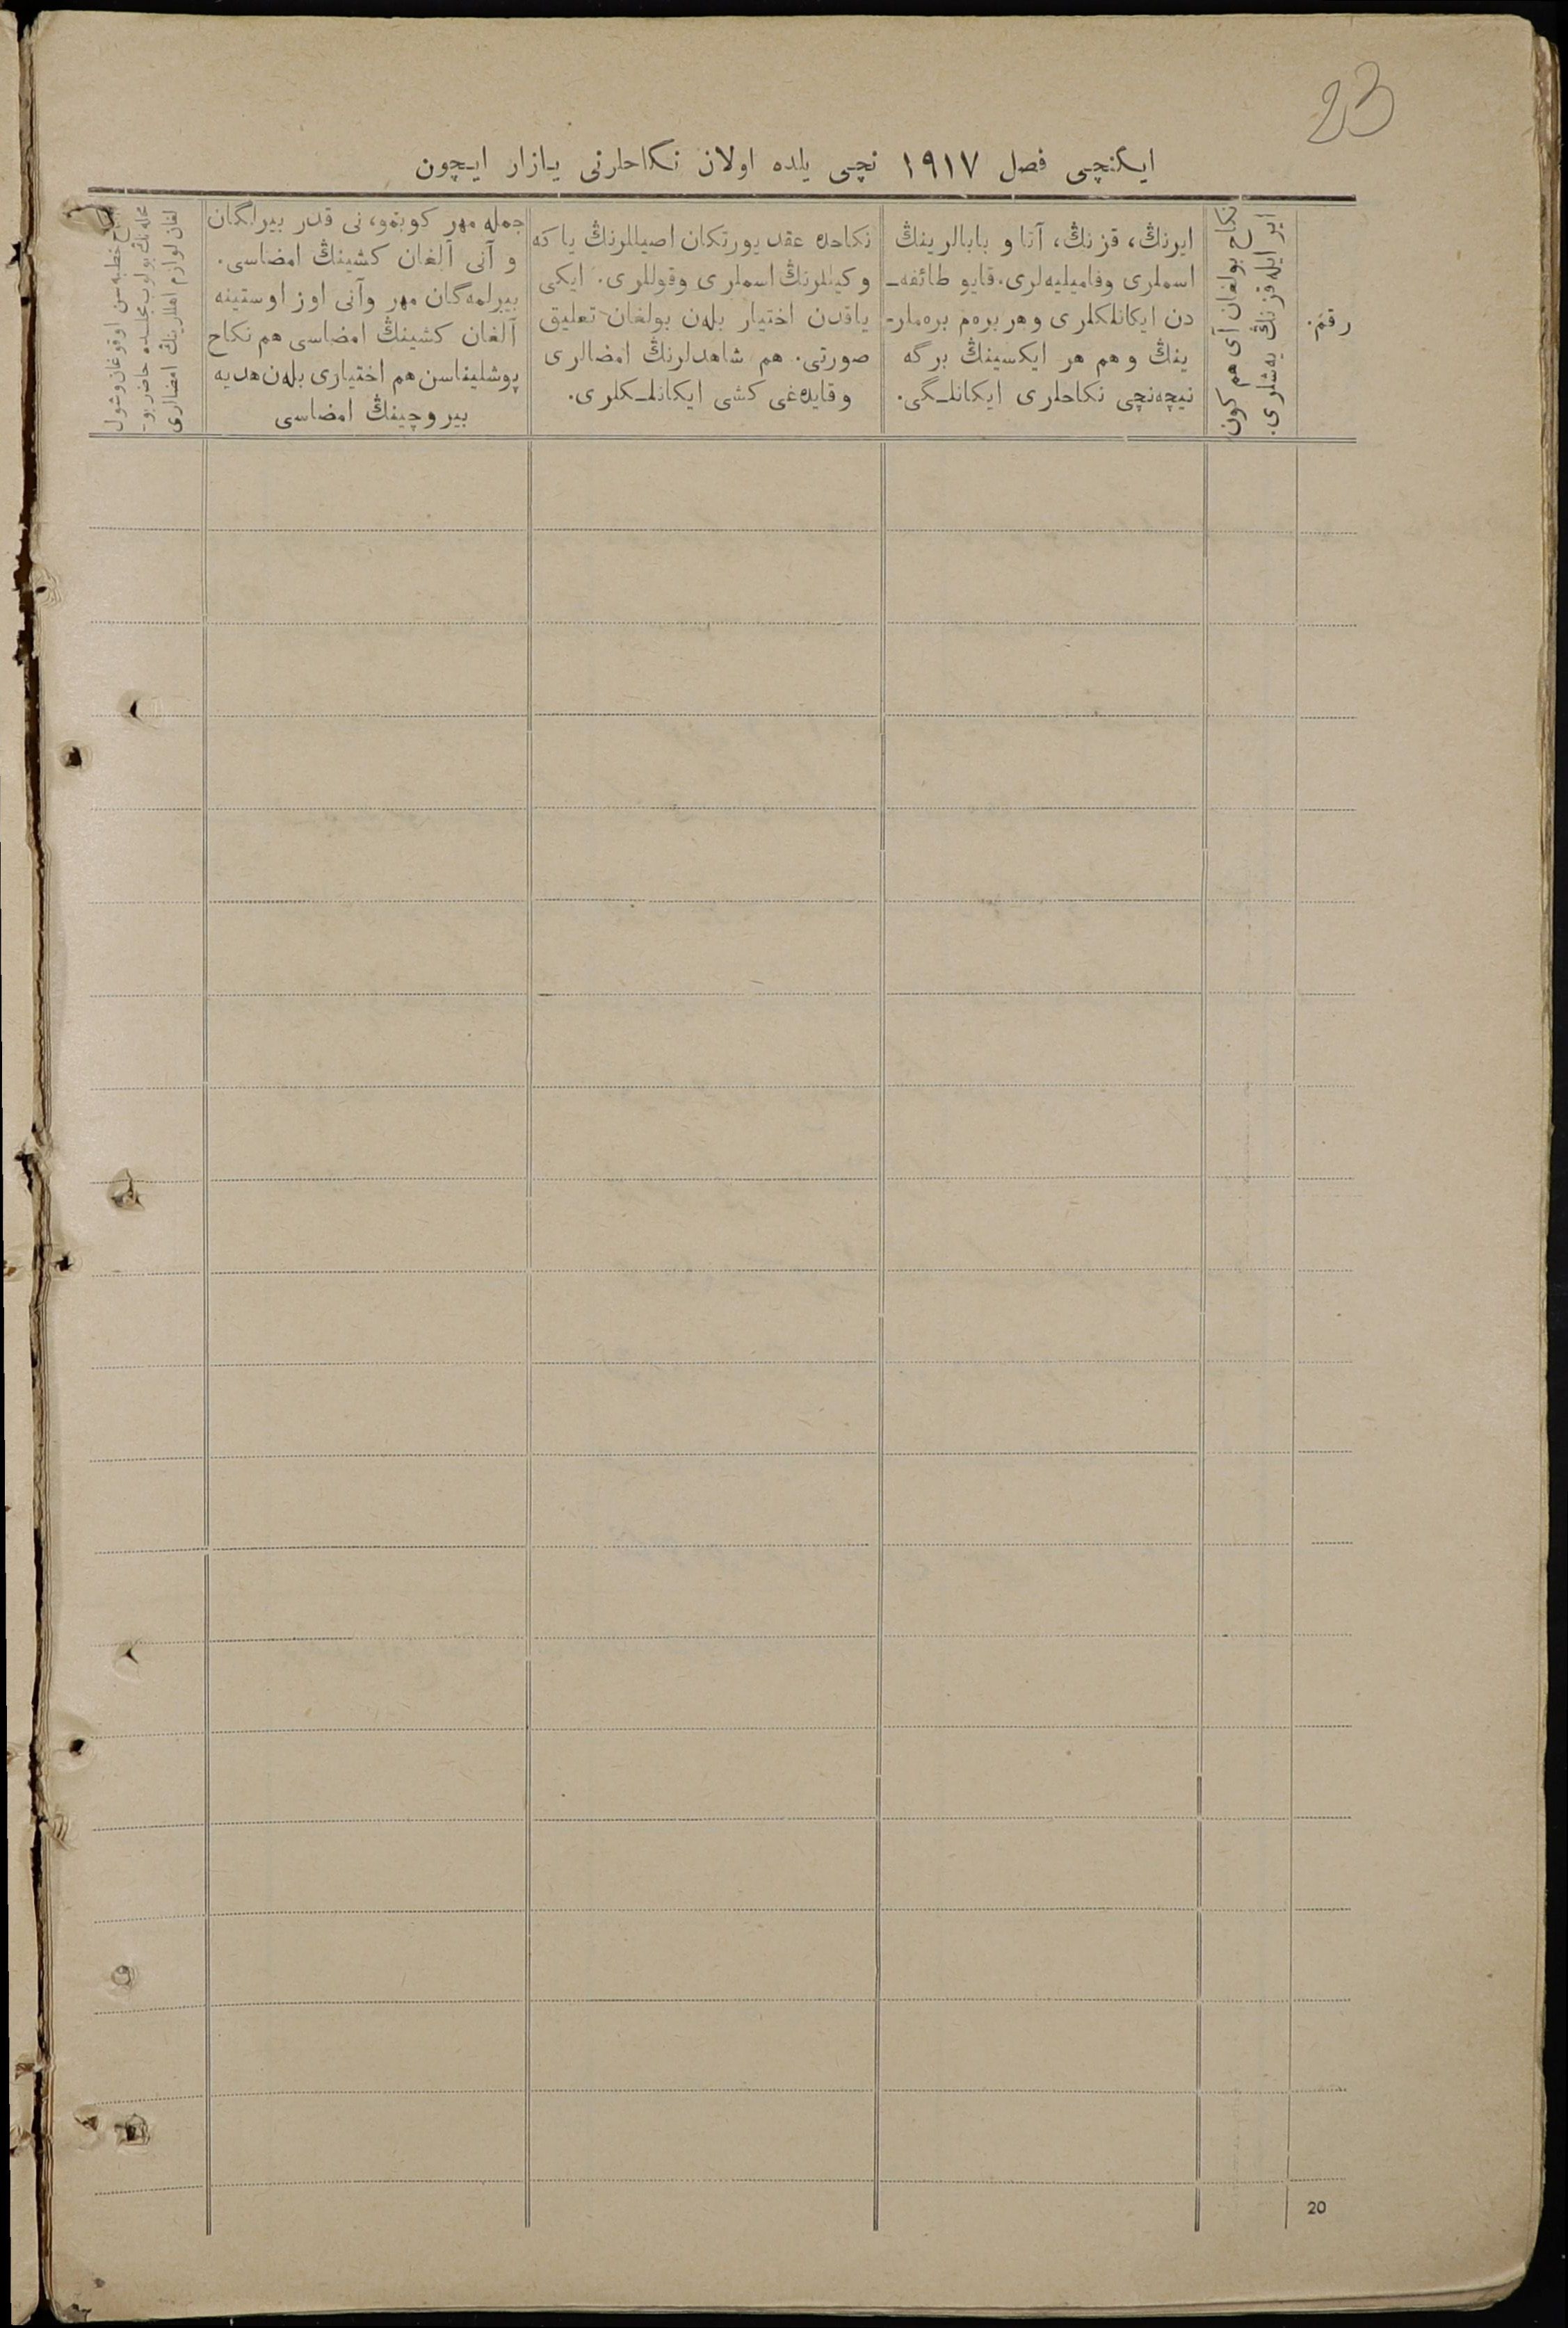 23
ایکنچی فصل ١٩١٧ نچی یلده اولان نکاحلرنی یازار ایچون
رقم.
نکاح بولغان آی هم کون
ایر ایله قزنڭ یه‌شلری.
ایرنڭ، قزنڭ، آتا و بابالرینڭ
اسملری وفامیلیه‌لری. قایو طائفه‌ـ
دن ایکانلکلری وهر بره‌م بره‌ملر-
ینڭ وهم هر ایکسینڭ برگه
نیچه‌نچی نکاحلری ایکانلـگی.
نکاحده عقد یورتکان اصیللرنڭ یا که
وکیللرنڭ اسملری وقوللری. ایکی
یاقدن اختیار بله‌ن بولغان تعلیق
صورتی. هم شاهدلرنڭ امضالری
وقایده‌غی کشی ایکانلـکلری.
جمله مهر کوبتمو، نی قدر بیرلگان
و آنی آلغان کشینڭ امضاسی.
بیرلمه‌گان مهر وآنی اوز اوستینه
آلغان کشینڭ امضاسی هم نکاح
پوشلیناسن هم اختیاری بله‌ن هدیه
بیروچینڭ امضاسی
خطبه‌سن اوقوغان وشول
محله‌نڭ بولوب مجلسده حاضر بو-
لغان لوازم اهللرینڭ امضالری
20